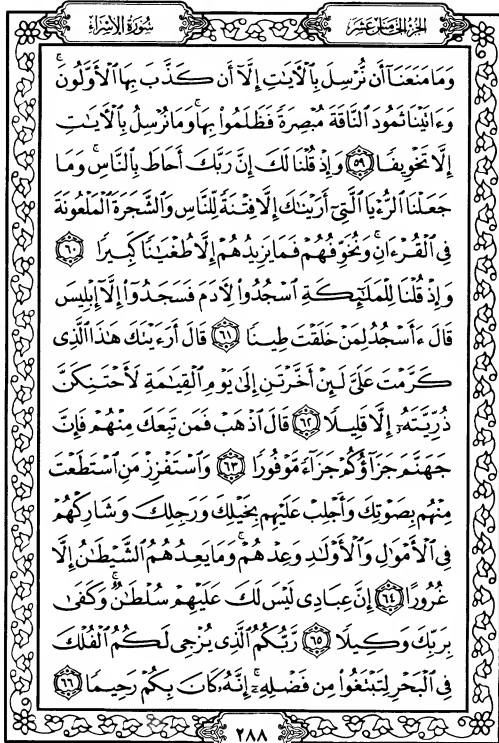 سُورَةُ الإِسْرَاءِ
الجُزْءُ الخَامِسَ عَشَرَ
وَمَا مَنَعَنَآ أَن نُّرْسِلَ بِٱلْأٓيَٰتِ إِلَّآ أَن كَذَّبَ بِهَا ٱلْأَوَّلُونَۚ
وَءَاتَيْنَا ثَمُودَ ٱلنَّاقَةَ مُبْصِرَةً فَظَلَمُوا۟ بِهَاۚ وَمَا نُرْسِلُ بِٱلْأٓيَٰتِ
إِلَّا تَخْوِيفًا ٥٩ وَإِذْ قُلْنَا لَكَ إِنَّ رَبَّكَ أَحَاطَ بِٱلنَّاسِۚ وَمَا
جَعَلْنَا ٱلرُّءْيَا ٱلَّتِىٓ أَرَيْنَٰكَ إِلَّا فِتْنَةً لِّلنَّاسِ وَٱلشَّجَرَةَ ٱلْمَلْعُونَةَ
فِى ٱلْقُرْءَانِۚ وَنُخَوِّفُهُمْ فَمَا يَزِيدُهُمْ إِلَّا طُغْيَٰنًا كَبِيرًا ٦٠
وَإِذْ قُلْنَا لِلْمَلَٰٓئِكَةِ ٱسْجُدُوا۟ لِأٓدَمَ فَسَجَدُوٓا۟ إِلَّآ إِبْلِيسَ
قَالَ ءَأَسْجُدُ لِمَنْ خَلَقْتَ طِينًا ٦١ قَالَ أَرَءَيْتَكَ هَٰذَا ٱلَّذِى
كَرَّمْتَ عَلَىَّ لَئِنْ أَخَّرْتَنِ إِلَىٰ يَوْمِ ٱلْقِيَٰمَةِ لَأَحْتَنِكَنَّ
ذُرِّيَّتَهُۥٓ إِلَّا قَلِيلًا ٦٢ قَالَ ٱذْهَبْ فَمَن تَبِعَكَ مِنْهُمْ فَإِنَّ
جَهَنَّمَ جَزَآؤُكُمْ جَزَآءً مَّوْفُورًا ٦٣ وَٱسْتَفْزِزْ مَنِ ٱسْتَطَعْتَ
مِنْهُم بِصَوْتِكَ وَأَجْلِبْ عَلَيْهِم بِخَيْلِكَ وَرَجِلِكَ وَشَارِكْهُمْ
فِى ٱلْأَمْوَٰلِ وَٱلْأَوْلَٰدِ وَعِدْهُمْۚ وَمَا يَعِدُهُمُ ٱلشَّيْطَٰنُ إِلَّا
غُرُورًا ٦٤ إِنَّ عِبَادِى لَيْسَ لَكَ عَلَيْهِمْ سُلْطَٰنٌۚ وَكَفَىٰ
بِرَبِّكَ وَكِيلًا ٦٥ رَّبُّكُمُ ٱلَّذِى يُزْجِى لَكُمُ ٱلْفُلْكَ
فِى ٱلْبَحْرِ لِتَبْتَغُوا۟ مِن فَضْلِهِۦٓۚ إِنَّهُۥ كَانَ بِكُمْ رَحِيمًا ٦٦
٢٨٨